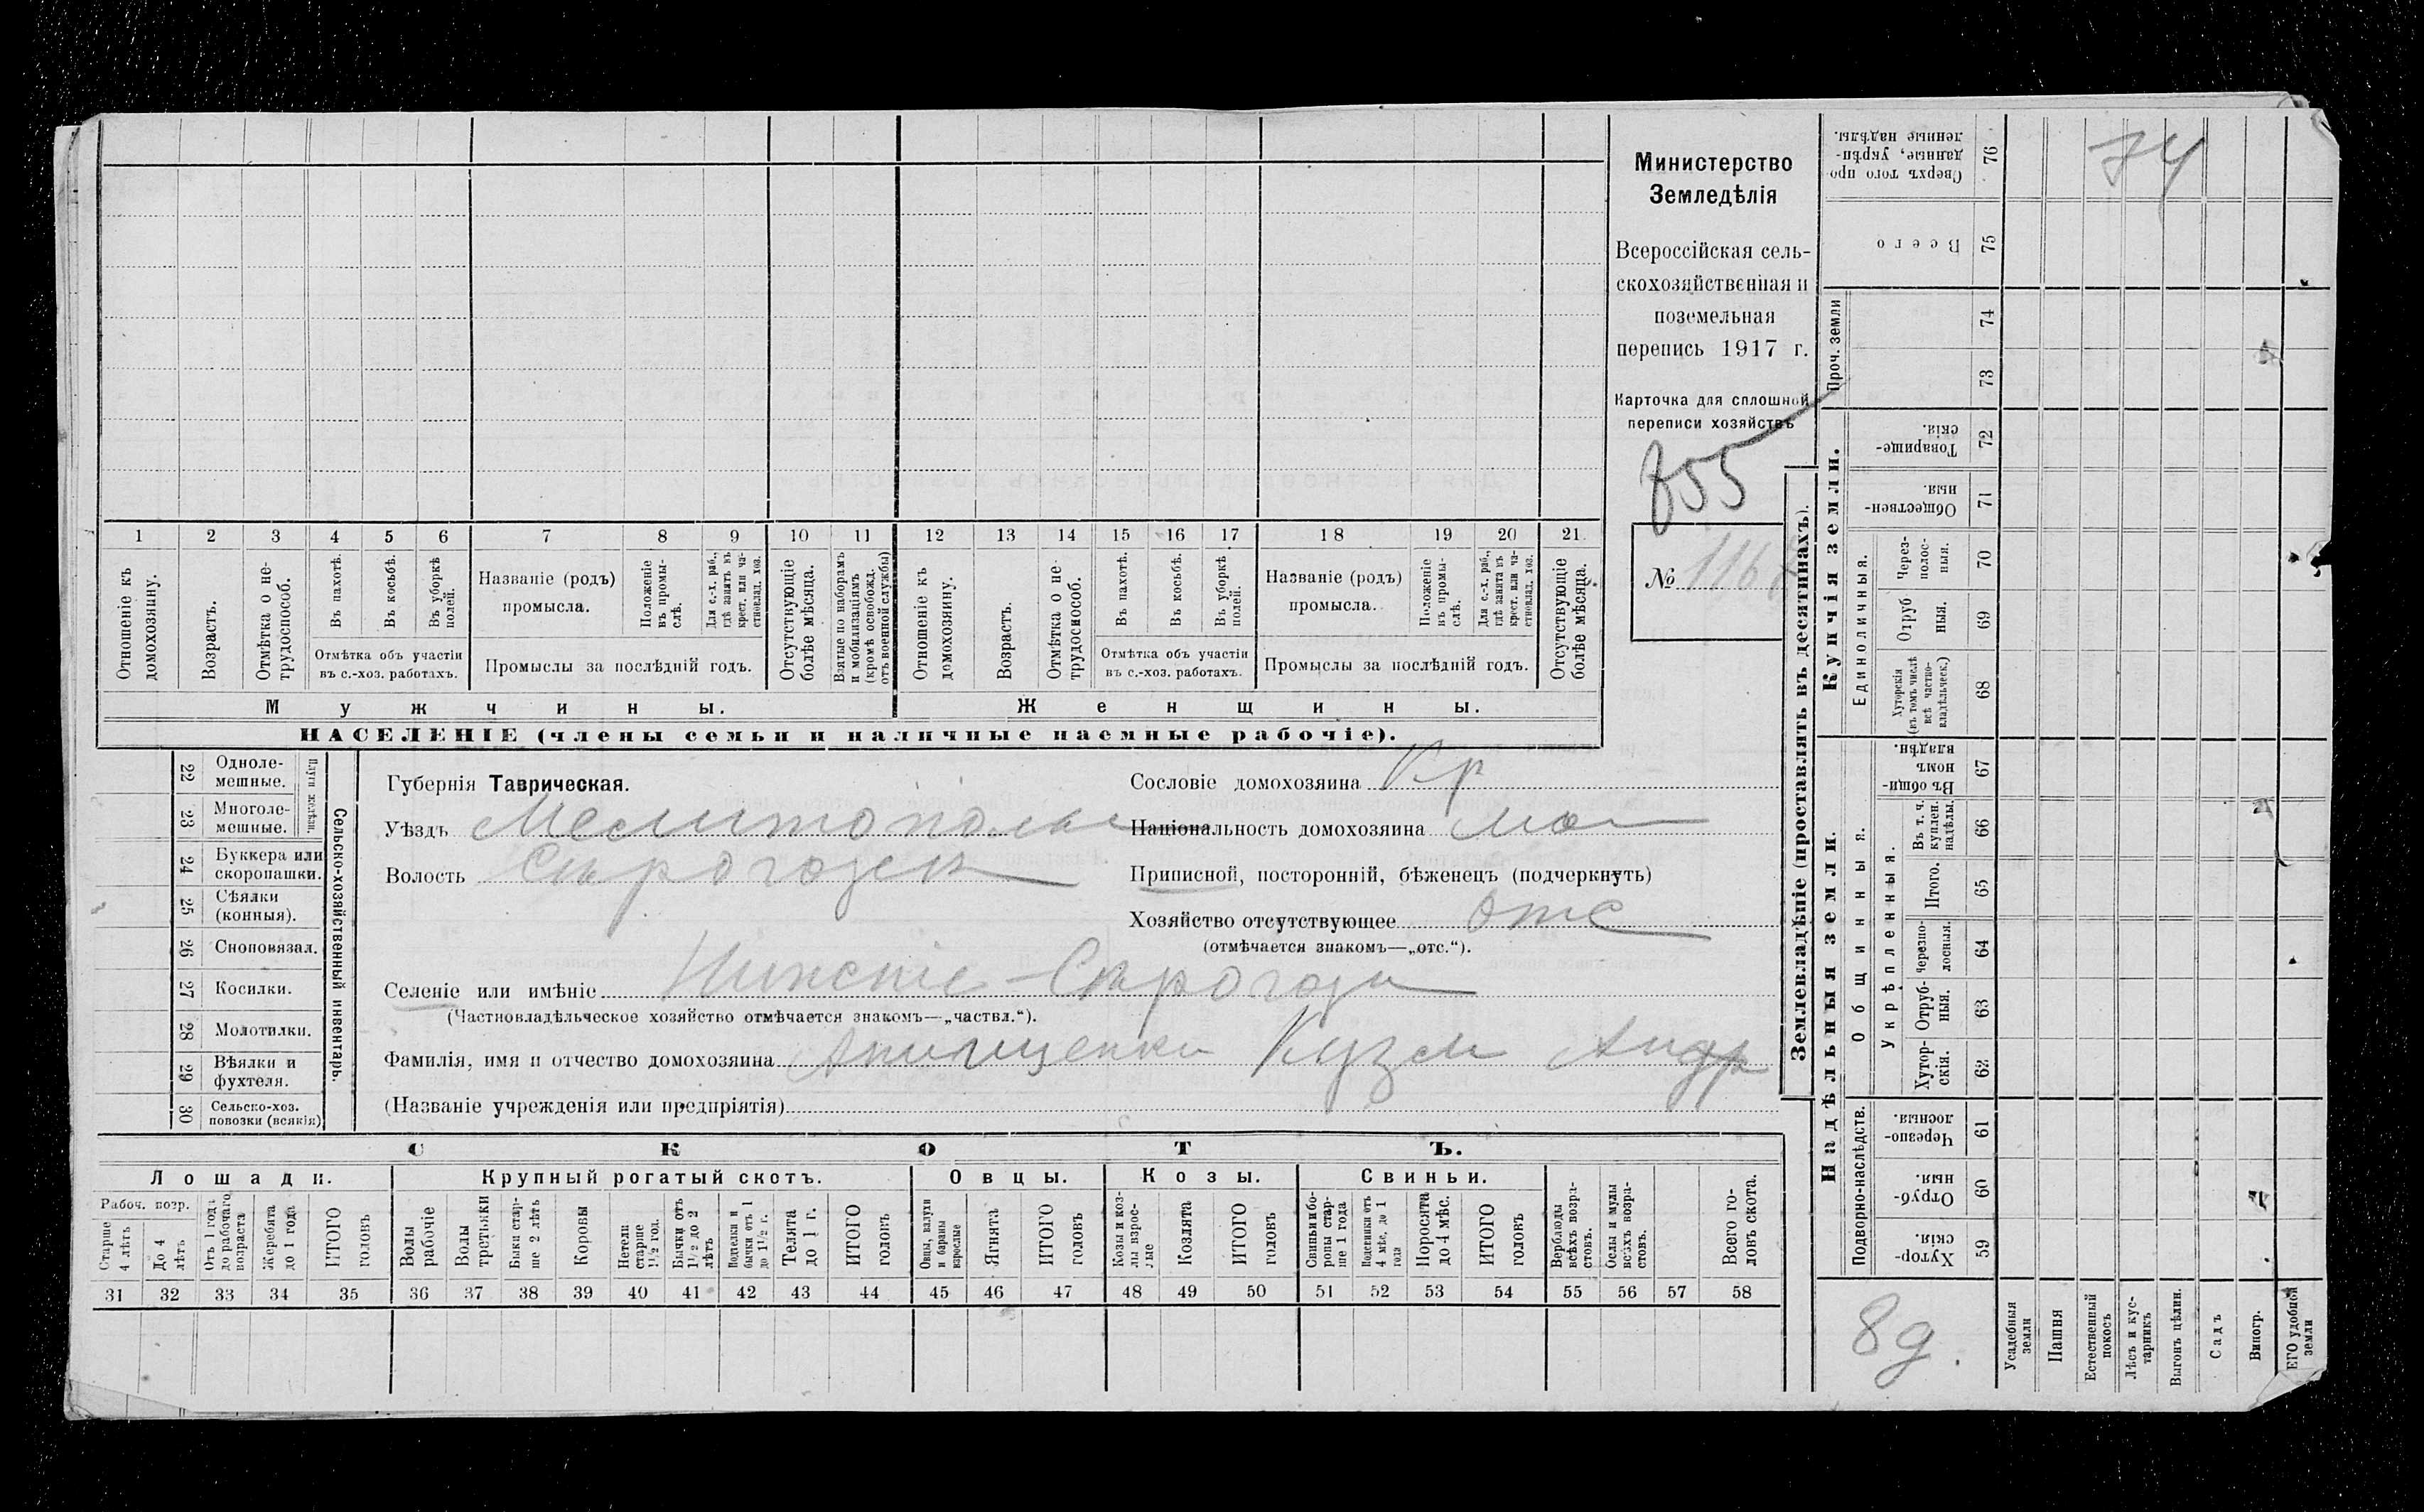 Министерство
Земледѣлія
Всероссійская сель-
скохозяйственная и
поземельная
перепись 1917 г.
Карточка для сплошной
переписи хозяйствъ
855
№ 116
1 2 3 4 5 6 7 8 9 10 11 12 13 14 15 16 17 18 19 20 21
Отношеніе къ домохозяину.
Возрастъ.
Отмѣтка о не-трудоспособ.
Въ пахотѣ.
Въ косьбѣ.
Въ уборкѣ полей.
Отмѣтка объ участіи
въ с.-хоз. работахъ.
Названіе (родъ)
промысла.
Положеніе въ промы-слѣ.
Для с.-х. раб., гдѣ занятъ въ крест. или ча-стновлад. хоз.
Промыслы за послѣдній годъ.
Отсутствующіе болѣе мѣсяца.
Взятые по наборамъ и мобилизаціямъ (кромѣ освобожд. отъ военной службы)
Отношеніе къ домохозяину.
Возрастъ.
Отмѣтка о не-трудоспособ.
Въ пахотѣ.
Въ косьбѣ.
Въ уборкѣ полей.
Отмѣтка объ участіи
въ с.-хоз. работахъ.
Названіе (родъ)
промысла.
Положеніе въ промы-слѣ.
Для с.-х. раб., гдѣ занята въ крест. или ча-стновлад. хоз.
Промыслы за послѣдній годъ.
Отсутствующіе болѣе мѣсяца.
Мужчины.
Женщины.
НАСЕЛЕНІЕ (члены семьи и наличные наемные рабочіе).
Сельско-хозяйственный инвентарь.
Плуги желѣзн.
22 Одноле-мешные.
23 Многоле-мешные.
24 Буккера или скоропашки.
25 Сѣялки (конныя).
26 Сноповязал.
27 Косилки.
28 Молотилки.
29 Вѣялки и фухтеля.
30 Сельско-хоз. повозки (всякія)
Губернія Таврическая.
Уѣздъ Мелитополь
Волость Сѣрогозск
Сословіе домохозяина Кр
Національность домохозяина мал
Приписной, посторонній, бѣженецъ (подчеркнуть)
Хозяйство отсутствующее отс
(отмѣчается знакомъ—„отс.“).
Селеніе или имѣніе Нижніе-Сѣрогозы
(Частновладѣльческое хозяйство отмѣчается знакомъ—„частвл.“).
Фамилія, имя и отчество домохозяина Кузм Андр
(Названіе учрежденія или предпріятія)
СКОТЪ.
Лошади. Крупный рогатый скотъ. Овцы. Козы. Свиньи.
Рабоч. возр.
Старше 4 лѣтъ
До 4 лѣтъ
Отъ 1 года до рабочаго возраста
Жеребята до 1 года
ИТОГО головъ
Волы рабочіе
Волы третьяки
Быки стар-ше 2 лѣтъ
Коровы
Нетели старше 1½ год.
Бычки отъ 1½ до 2 лѣтъ
Подтелки и бычки отъ 1 до 1½ г.
Телята до 1 г.
ИТОГО головъ
Овцы, валухи и бараны взрослые
Ягнята
ИТОГО головъ
Козы и коз-лы взрос-лые
Козлята
ИТОГО головъ
Свиньи и бо-ровы стар-ше 1 года
Подсвинки отъ 4 мѣс. до 1 года
Поросята до 4 мѣс.
ИТОГО головъ
Верблюды всѣхъ возра-стовъ.
Ослы и мулы всѣхъ возра-стовъ.
Всего го-ловъ скота.
31 32 33 34 35 36 37 38 39 40 41 42 43 44 45 46 47 48 49 50 51 52 53 54 55 56 57 58
Землевладѣніе (проставлять въ десятинахъ).
Купчія земли.
Надѣльныя земли.
Проч. земли
Единоличныя.
Общинныя.
Укрѣпленныя.
Подворно-наслѣдств.
76 Сверхъ того про-данные, укрѣп-ленные надѣлы.
75 Всего
74
73
72 Товарище-скія.
71 Обществен-ныя.
70 Через-полос-ныя.
69 Отруб-ныя.
68 Хуторскія (въ томъ числѣ всѣ частно-владѣльческ.)
67 Въ общи-номъ владѣн.
66 Въ т. ч. куплен. надѣлы.
65 Итого.
64 Черезпо-лосныя.
63 Отруб-ныя.
62 Хутор-скія.
61 Черезпо-лосныя.
60 Отруб-ныя.
59 Хутор-скія.
74
8д.
Усадебныя земли
Пашня
Естественный покосъ
Лѣсъ и кус-тарникъ
Выгонъ цѣлин.
Садъ
Виногр.
ЕГО удобной земли